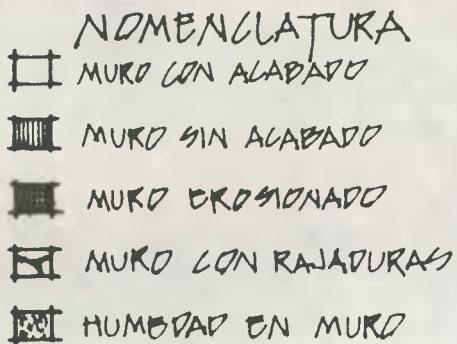 NOMENCLATURA
MURO CON ACABADO
MURO SIN ACABADO
MURO EROSIONADO
MURO CON RAJADURAS
HUMEDAD EN MURO